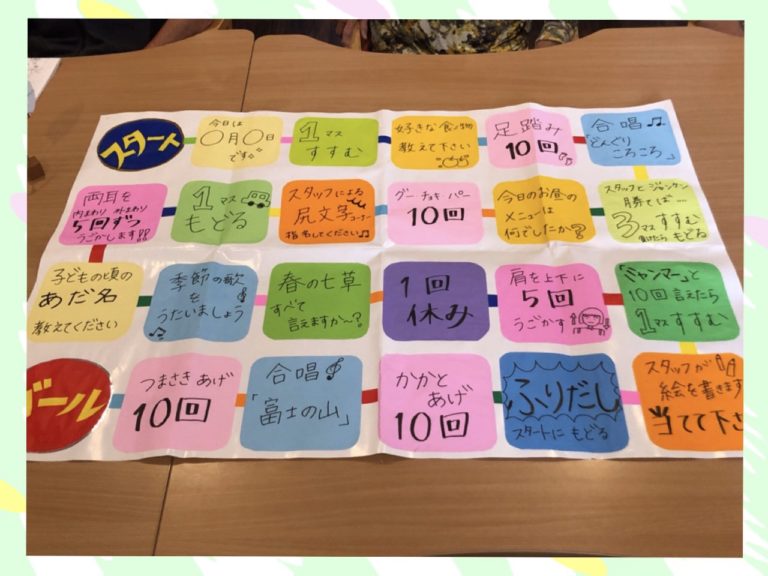 スタート
今日は
〇月〇日
です
1マス
すすむ
好きな食べ物
教えて下さい
足踏み
10回
合唱♫
「どんぐり
ころころ」
両耳を
内まわり 外まわり
5回ずつ
うごかします!!
1マス
もどる
スタッフによる
尻文字コーナー
指名してください♫
グー・チョキ・パー
10回
今日のお昼の
メニューは
何でしたか?
スタッフとジャンケン
勝てば…
3マスすすむ
負けたらもどる
子どもの頃の
あだ名
教えてください
季節の歌
を
うたいましょう
春の七草
すべて
言えますか〜?
1回
休み
肩を上下に
5回
うごかす
「ミャンマー」と
10回言えたら
1マスすすむ
ゴール
つまさきあげ
10回
合唱
「富士の山」
かかと
あげ
10回
ふりだし
スタートにもどる
スタッフが
絵を書きます
当てて下さ